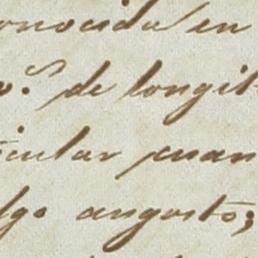 onocida en
o.s de longit
icular cuan
lgo angosto;